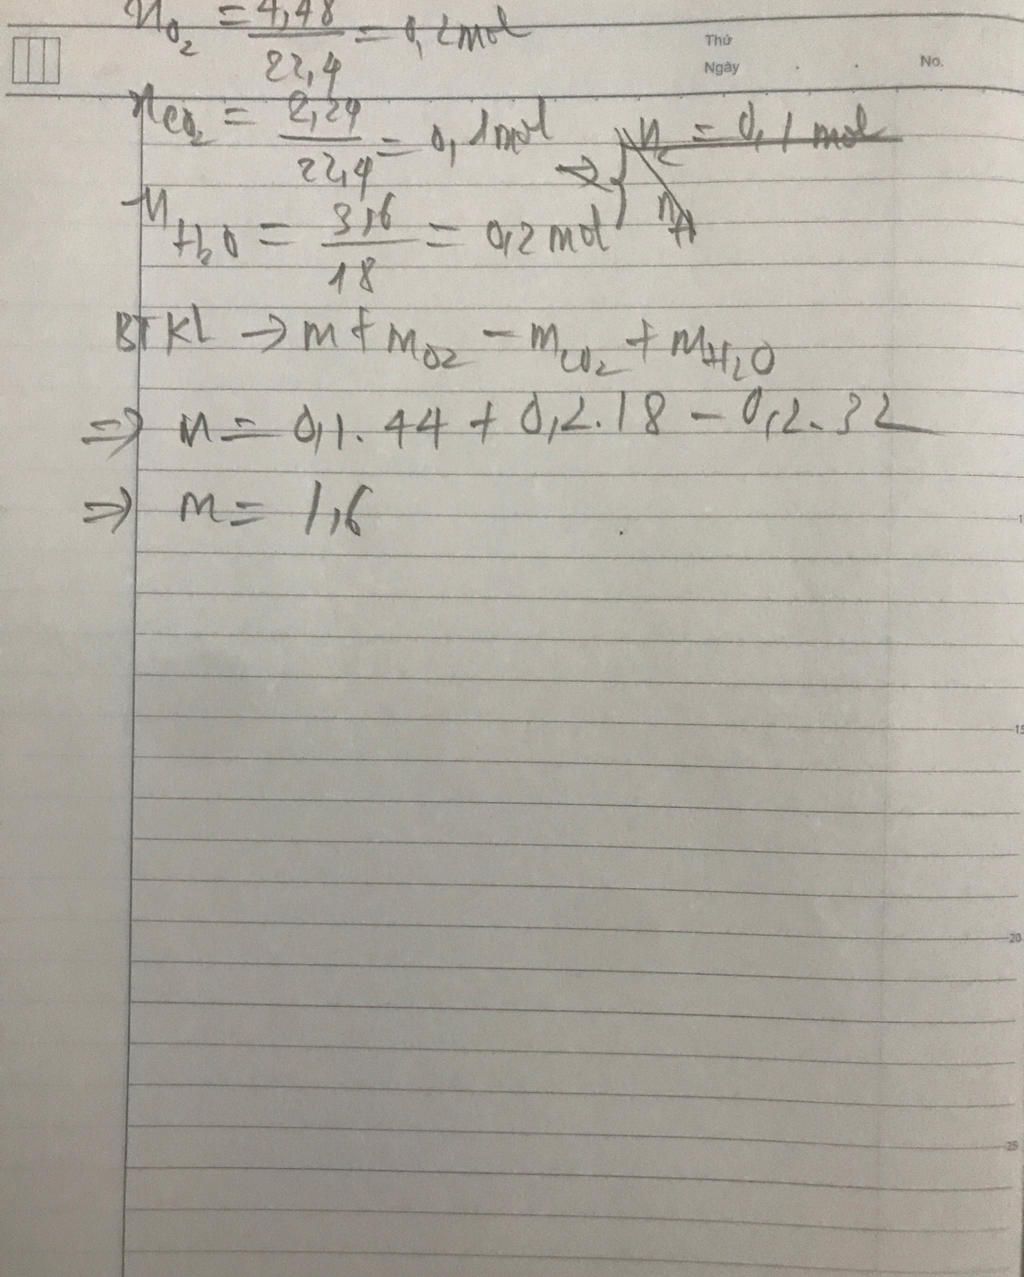 nO2 = 4,48/22,4 = 0,2mol
Thứ
Ngày . . No.
nCO2 = 2,24/22,4 = 0,1mol
⇒ { nC = 0,1 mol
nH
nH2O = 3,6/18 = 0,2mol
BTKL → m + mO2 = mCO2 + mH2O
⇒ m = 0,1.44 + 0,2.18 - 0,2.32
⇒ m = 1,6
15
20
25